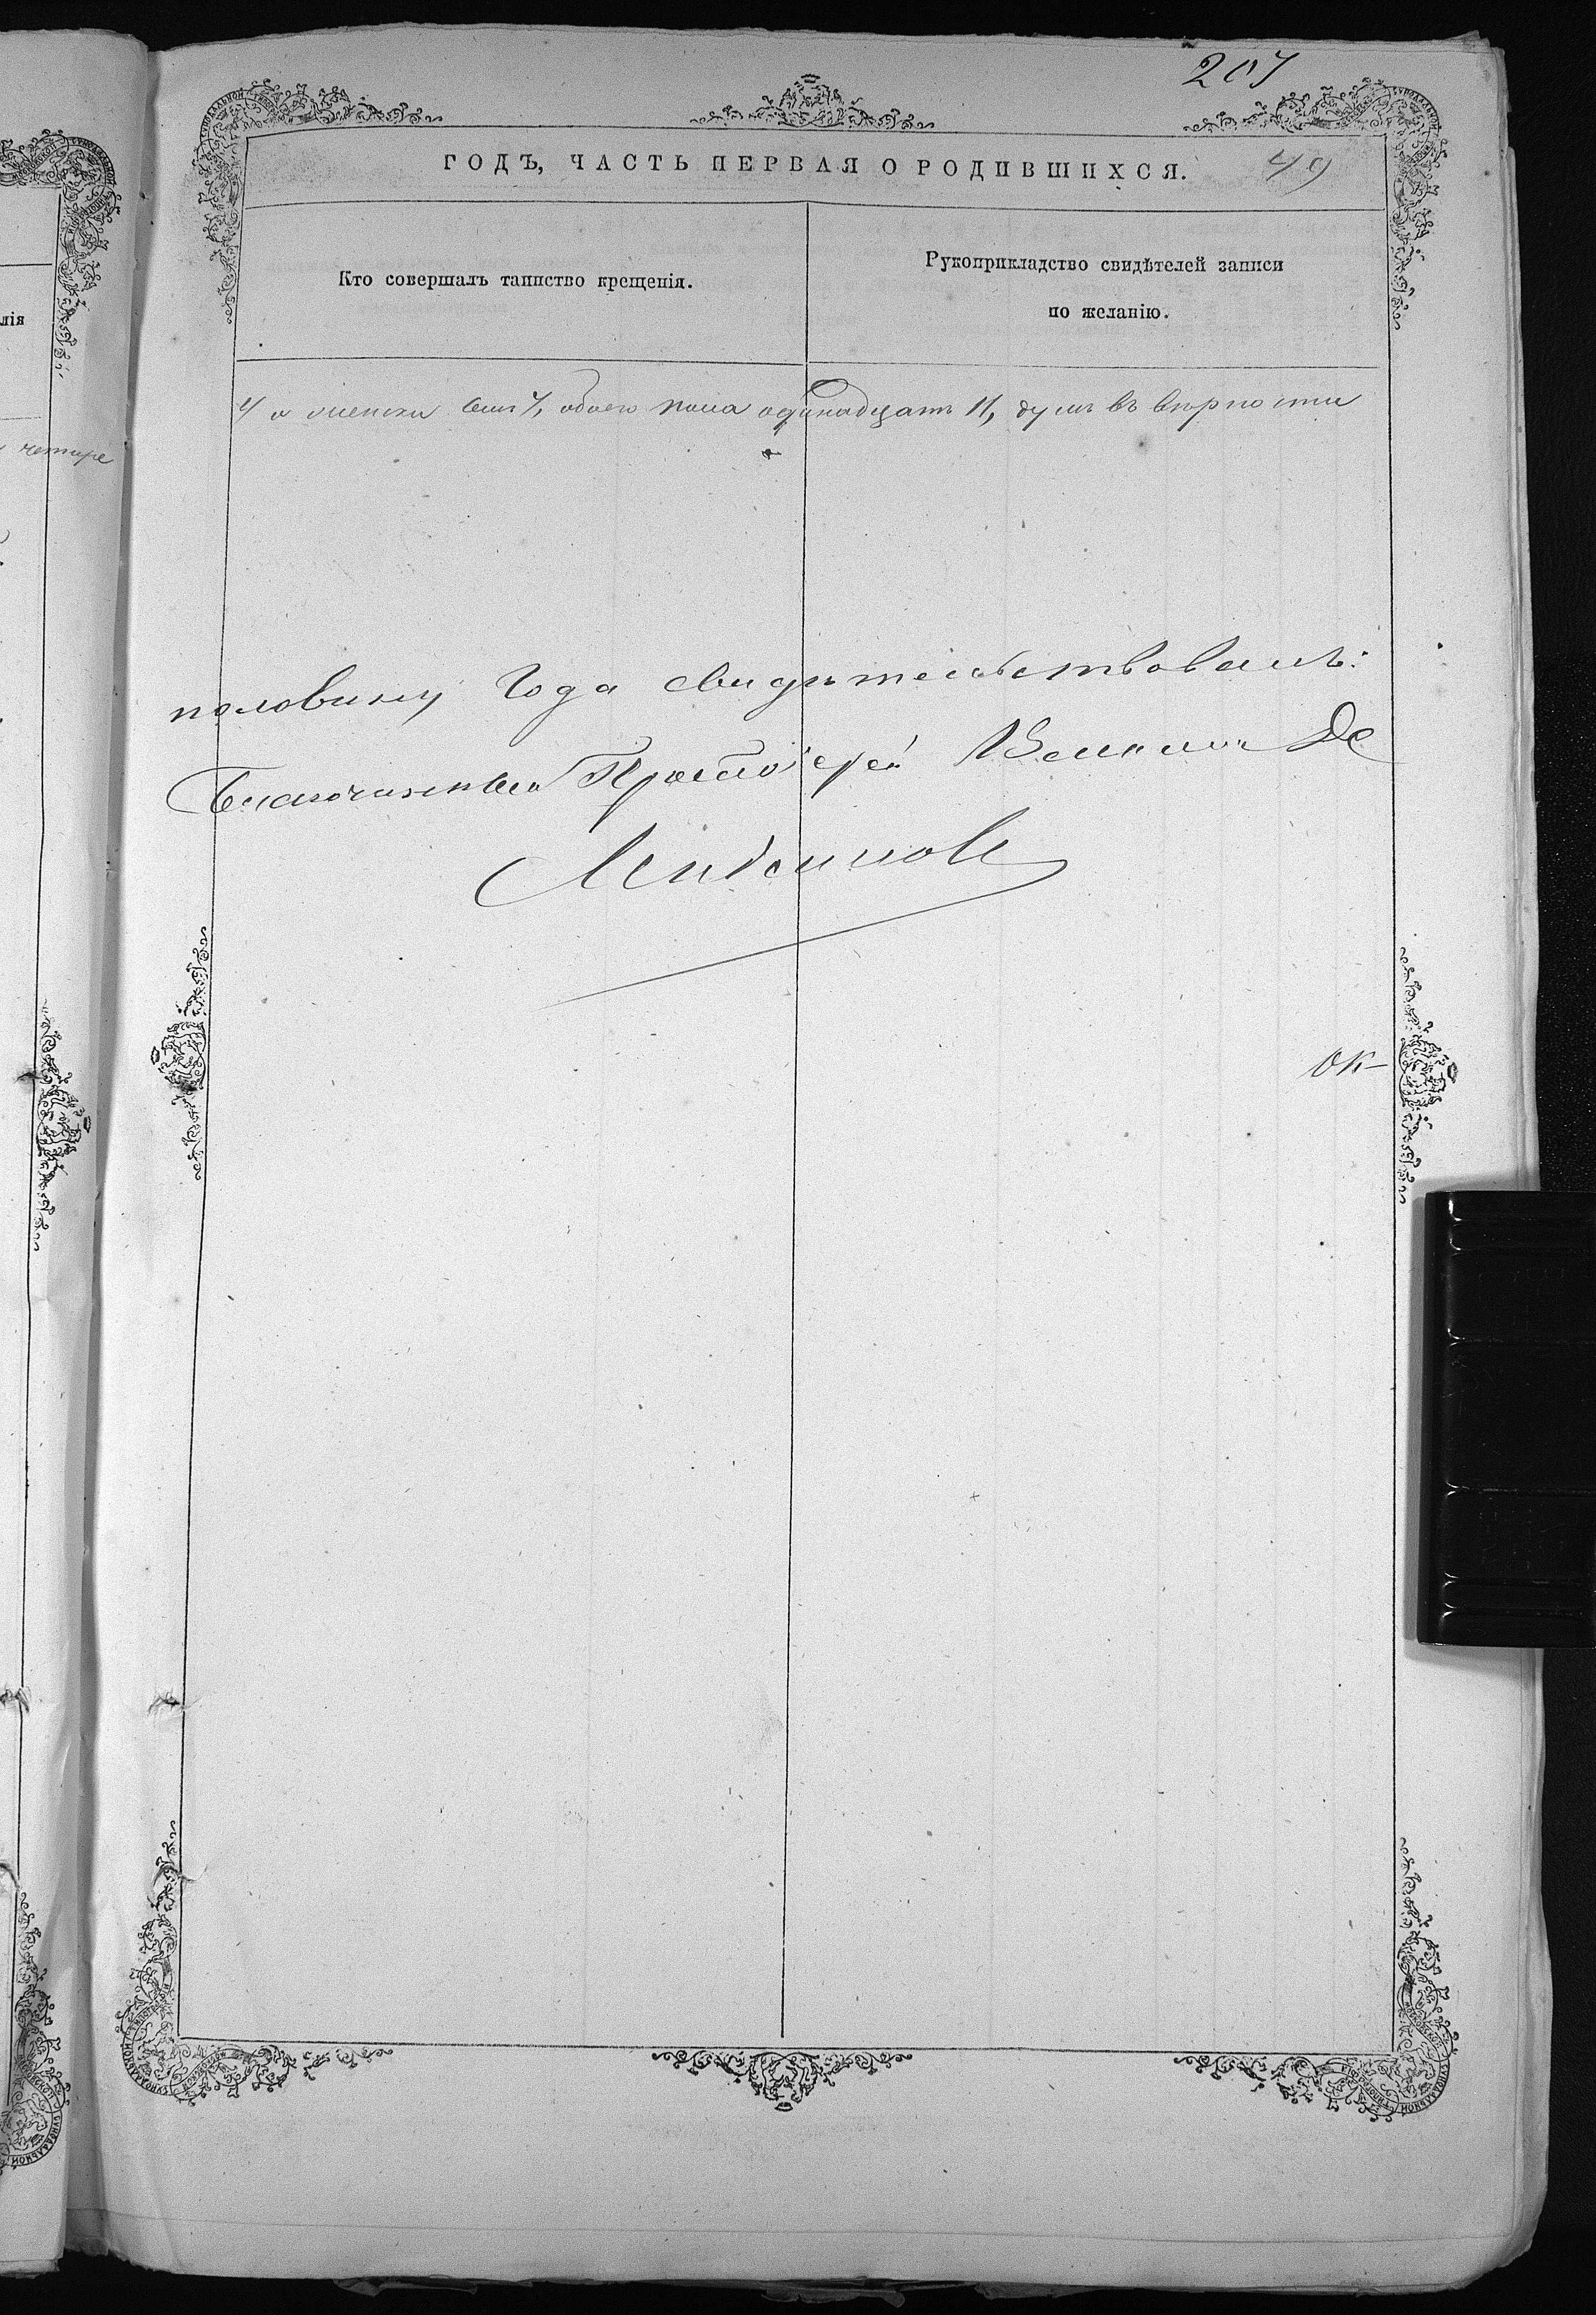 207
ГОДЪ, ЧАСТЬ ПЕРВАЯ О РОДИВШИХСЯ. 49
Кто совершалъ таинство крещенія.
Рукоприкладство свидѣтелей записи
по желанію.
лія
четыре
4 и женска семь 7, обоего пола одинадцать 11, душъ въ вѣрности
половину Года свидѣтельствовалъ:
Благочинный Протоіерей
ок-